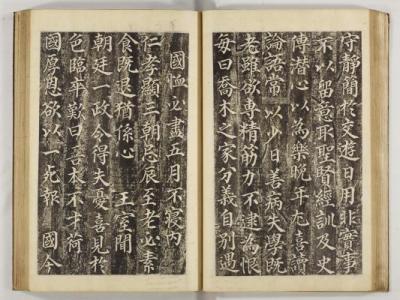 守靜簡於交遊日用非實事
不以留意取聖賢經訓及史
傳潛心以為樂晚年尤喜讀
論語常以少日善病失學既
老雖欲專精筋力不逮為恨
每曰喬木之家分義自別遇
國恤必盡五月不寢內
仁孝顯三朝忌辰至老必素
食既退猶係心 王室聞
朝廷一政令得失憂喜見於
色臨平歎曰吾本不才荷
國厚恩欲以一死報 國今